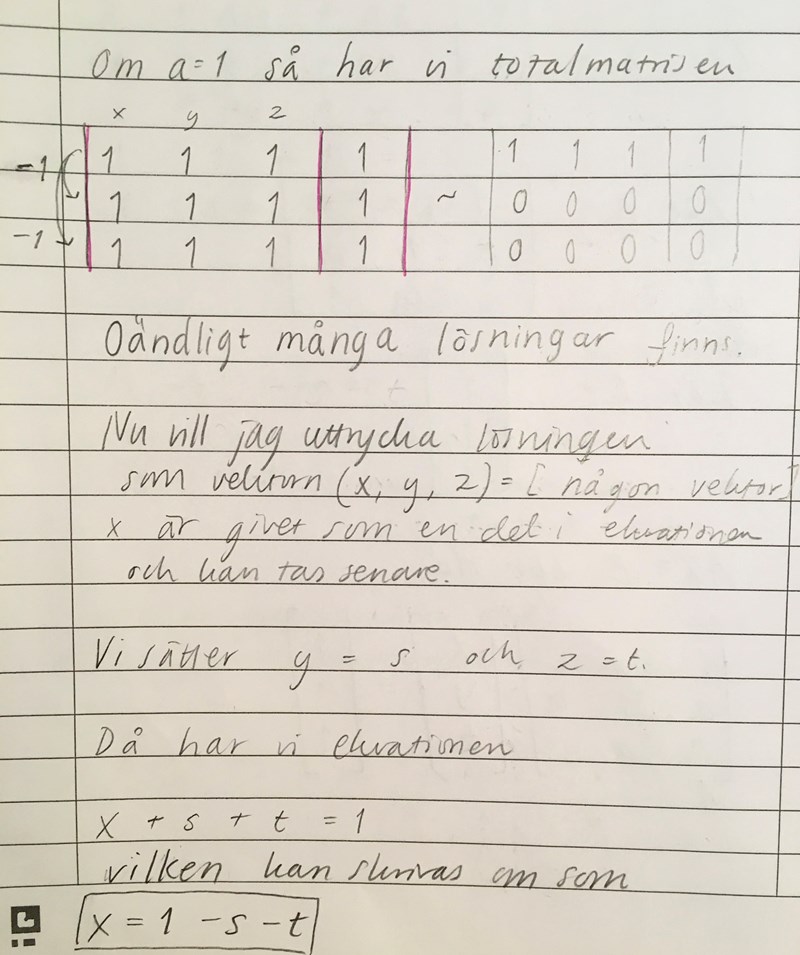 Om a=1 så har vi totalmatrisen
x y z
-1 1 1 1 1 1 1 1 1
1 1 1 1 ~ 0 0 0 0
-1 1 1 1 1 0 0 0 0
Oändligt många lösningar finns.
Nu vill jag uttrycka lösningen
som vektorn (x, y, z) = [någon vektor]
x är givet som en del i ekvationen
och kan tas senare.
Vi sätter y = s och z = t.
Då har vi ekvationen
x + s + t = 1
vilken kan skrivas om som
x = 1 - s - t